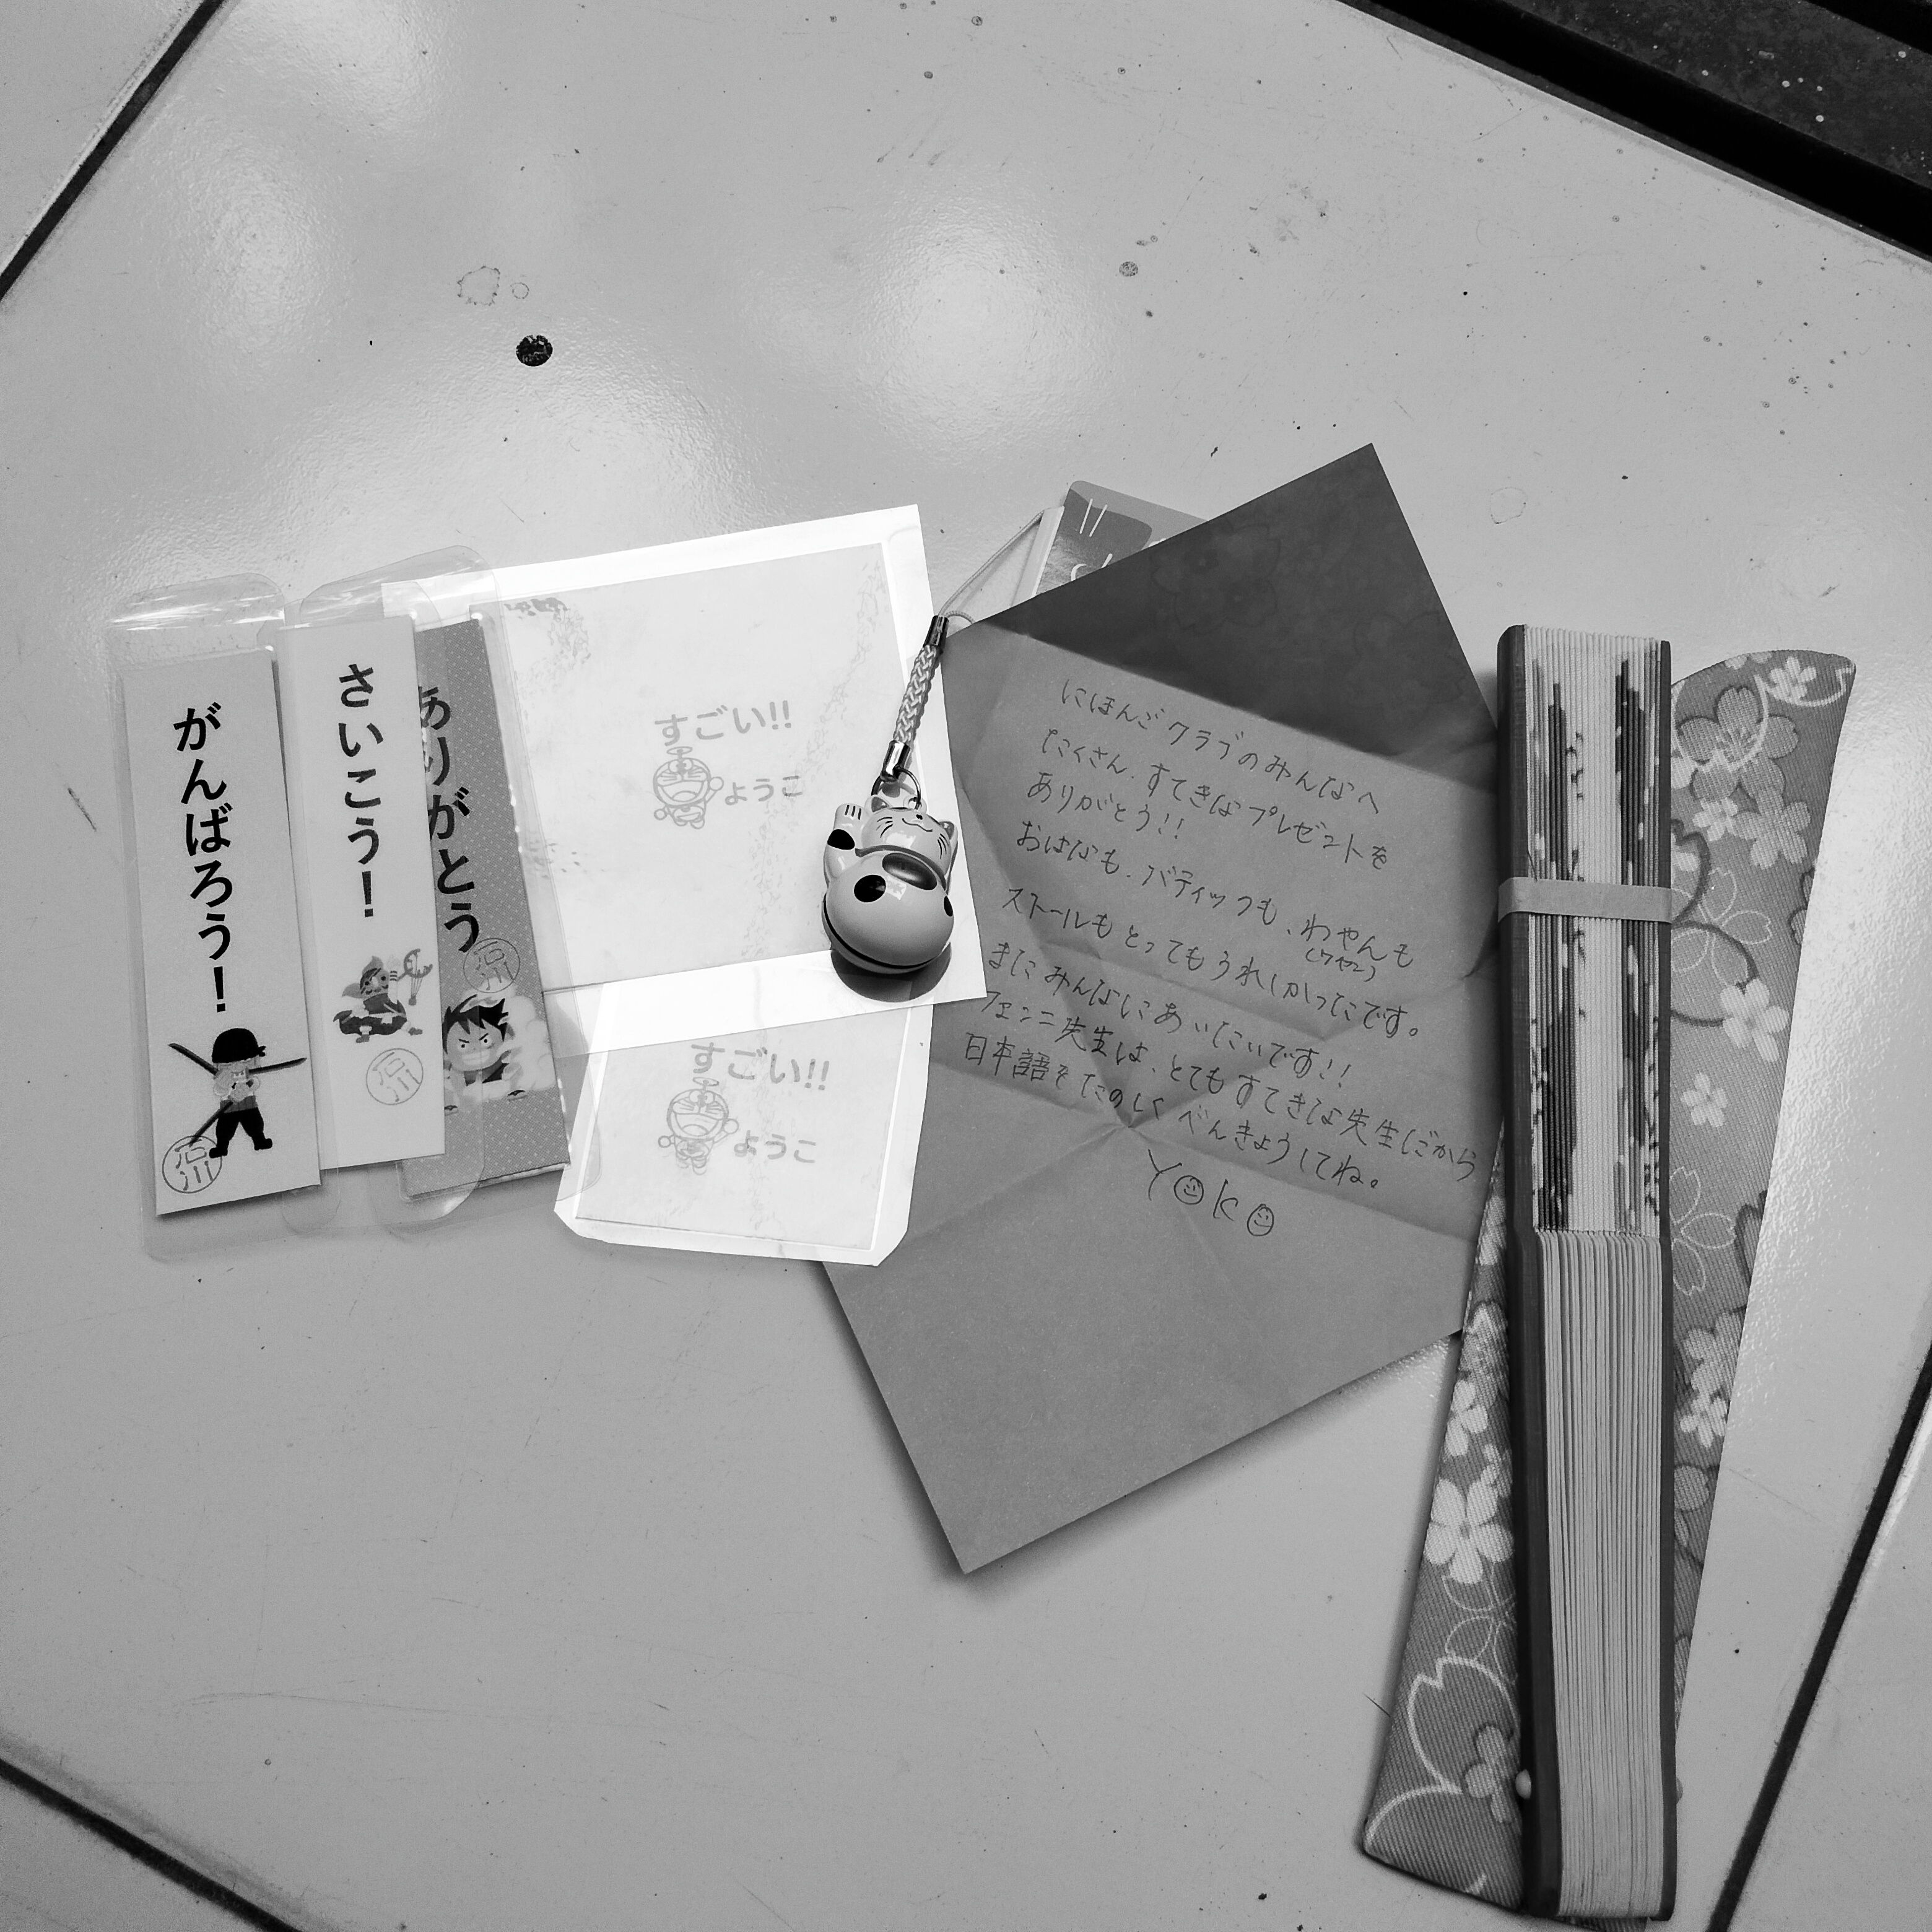 がんばろう!
さいこう!
ありがとう
すごい!!
ようこ
すごい!!
ようこ
にほんごクラブのみんなへ
たくさん、すてきなプレゼントを
ありがとう!!
おはなも、バティックも、わやんも
(ワヤン)
ストールもとってもうれしかったです。
またみんなにあいたいです!!
フェンニ先生は、とてもすてきな先生だから
日本語をたのしくべんきょうしてね。
Yoko